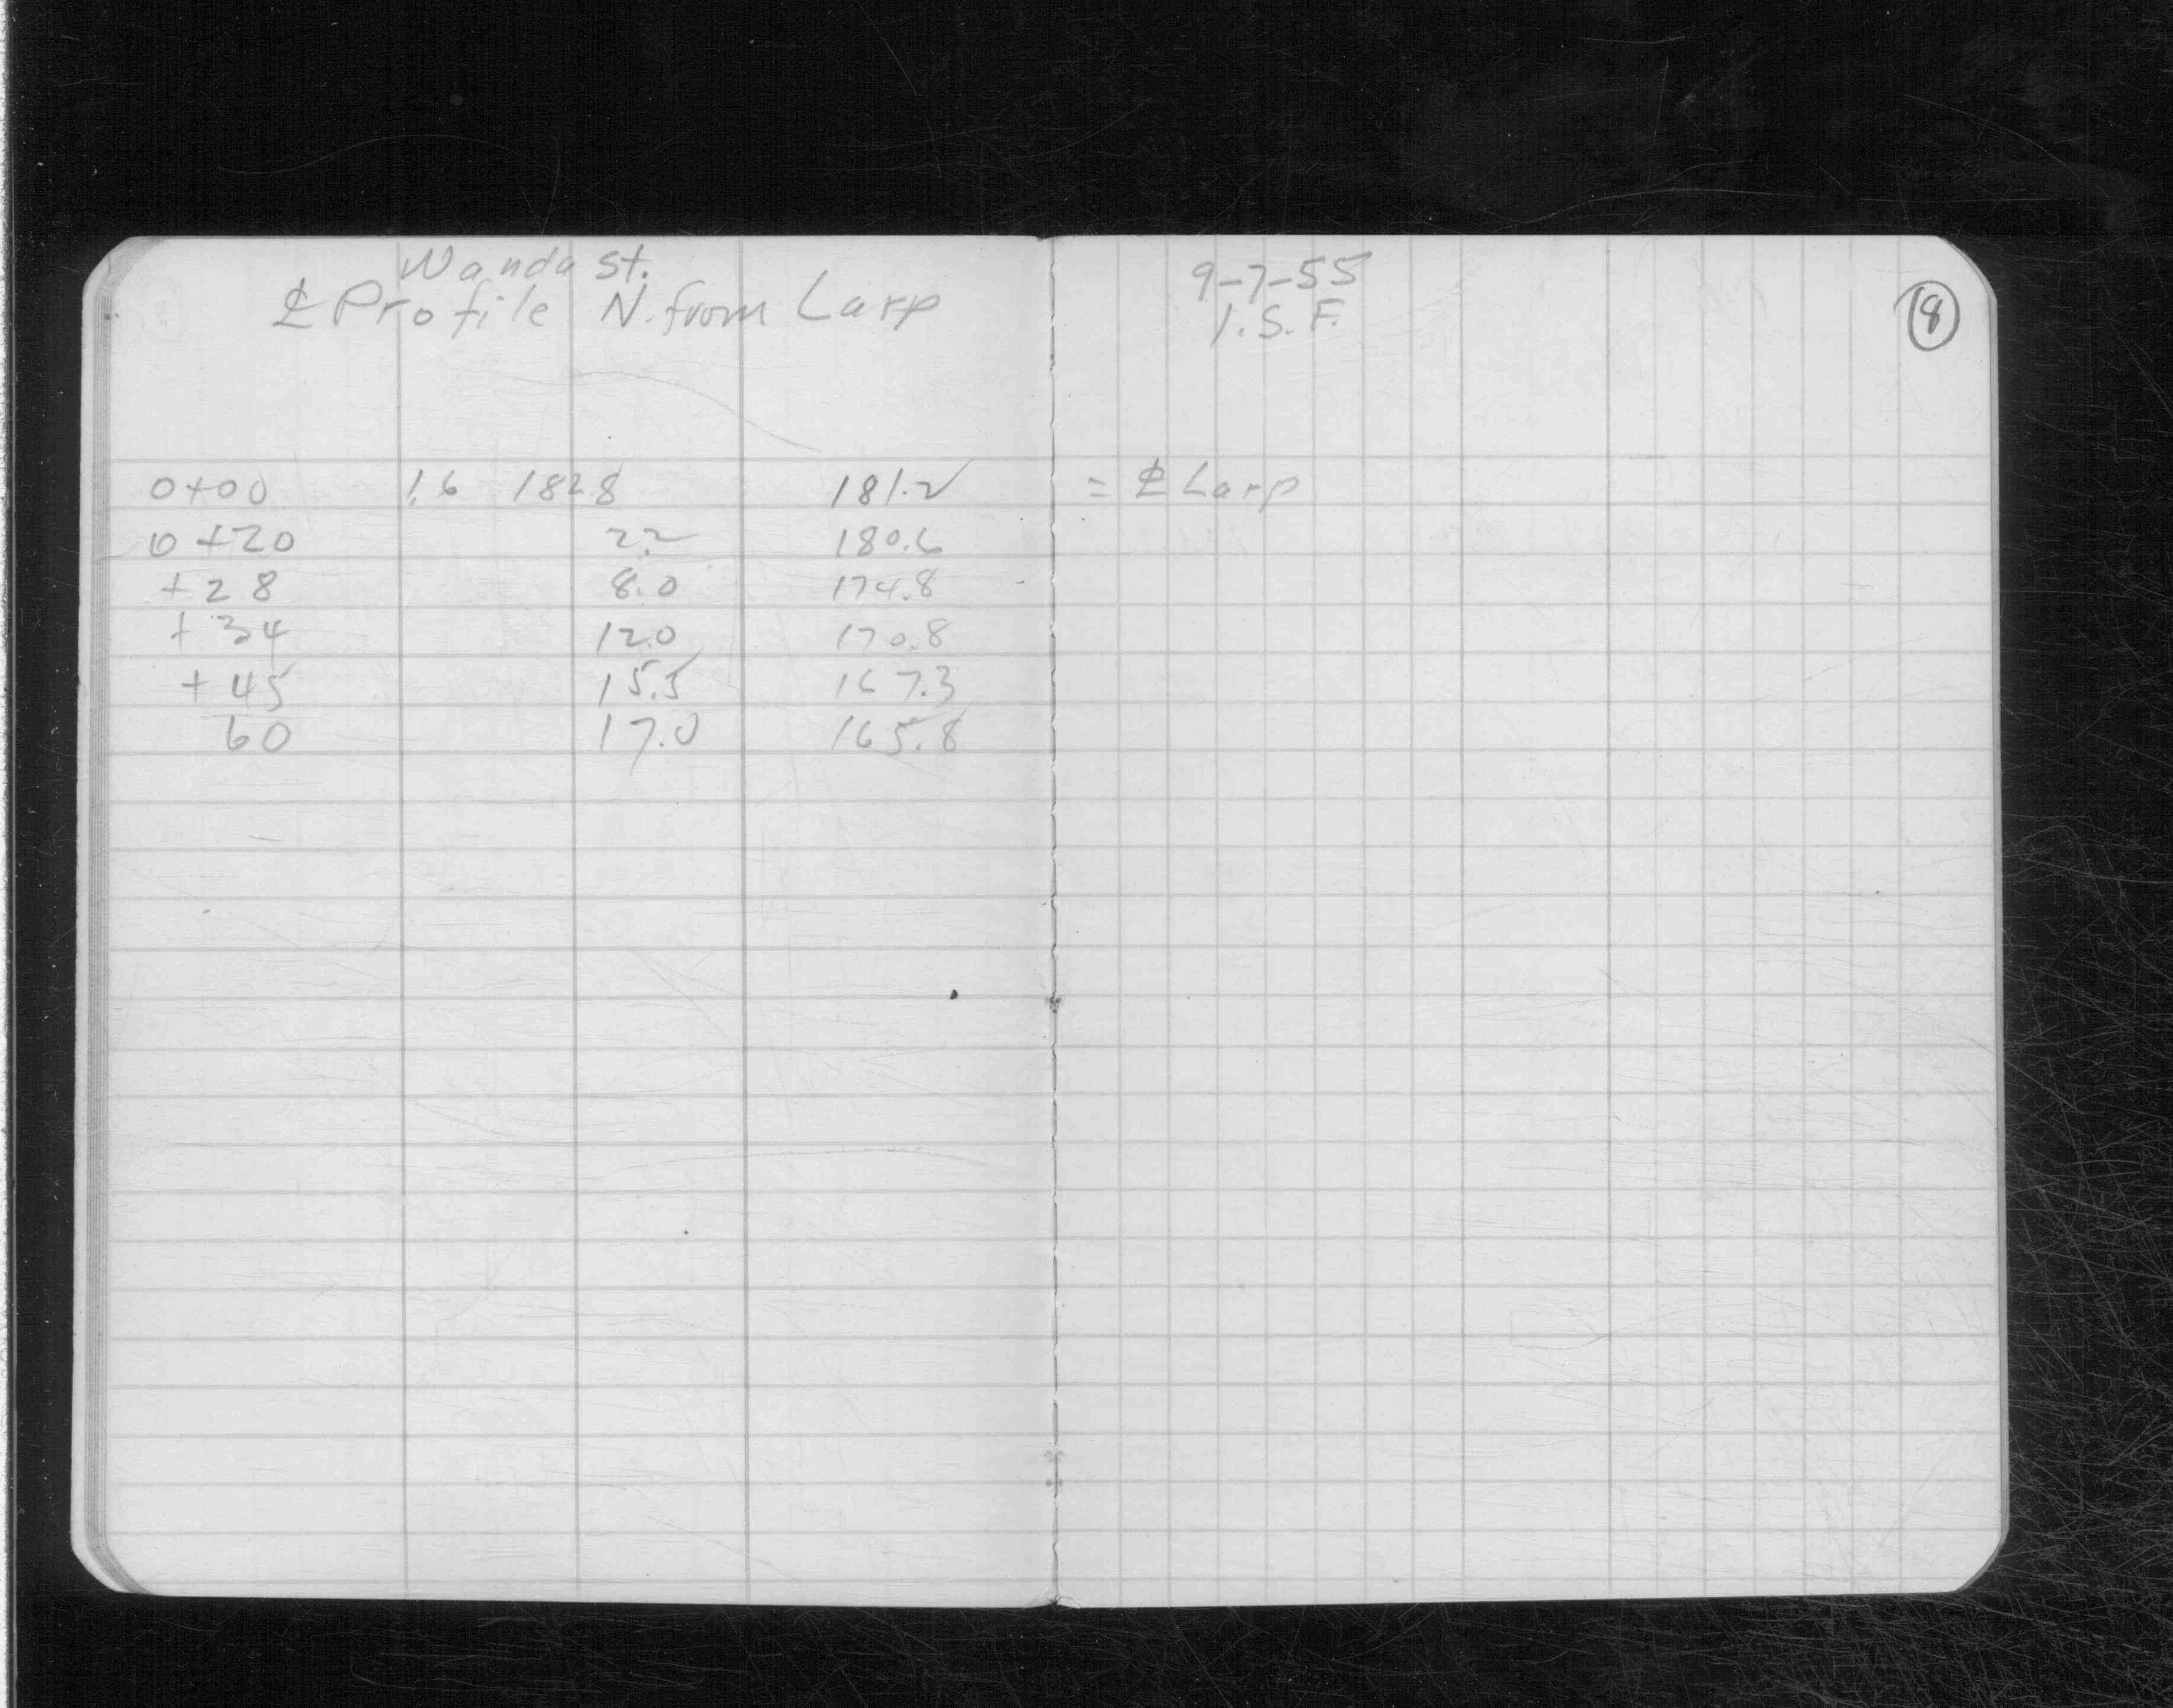 Wanda St.
℄ Profile N. from Larp
9-7-55
I.S.F.
18
0+00 1.6 182.8 181.2 = ℄ Larp
0+20 2.2 180.6
+28 8.0 174.8
+34 12.0 170.8
+45 15.5 167.3
60 17.0 165.8